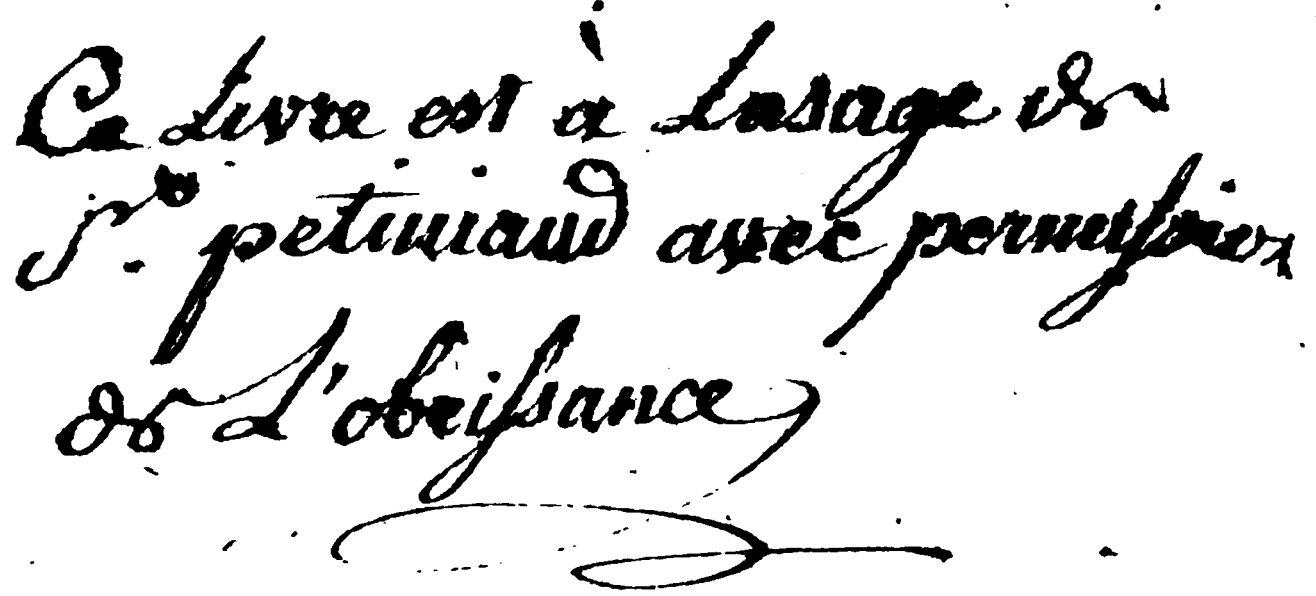 Ce Livre est à Lusage de
Sr. petiniaud avec permission
de L'obeissance